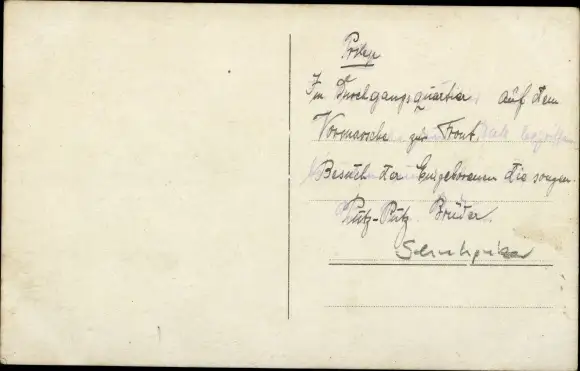 Im Durchgangsquartier, auf dem
Vormarsche zur Front.
Besuch der Eingeborenen die sogen.
Putz-Putz Brüder.